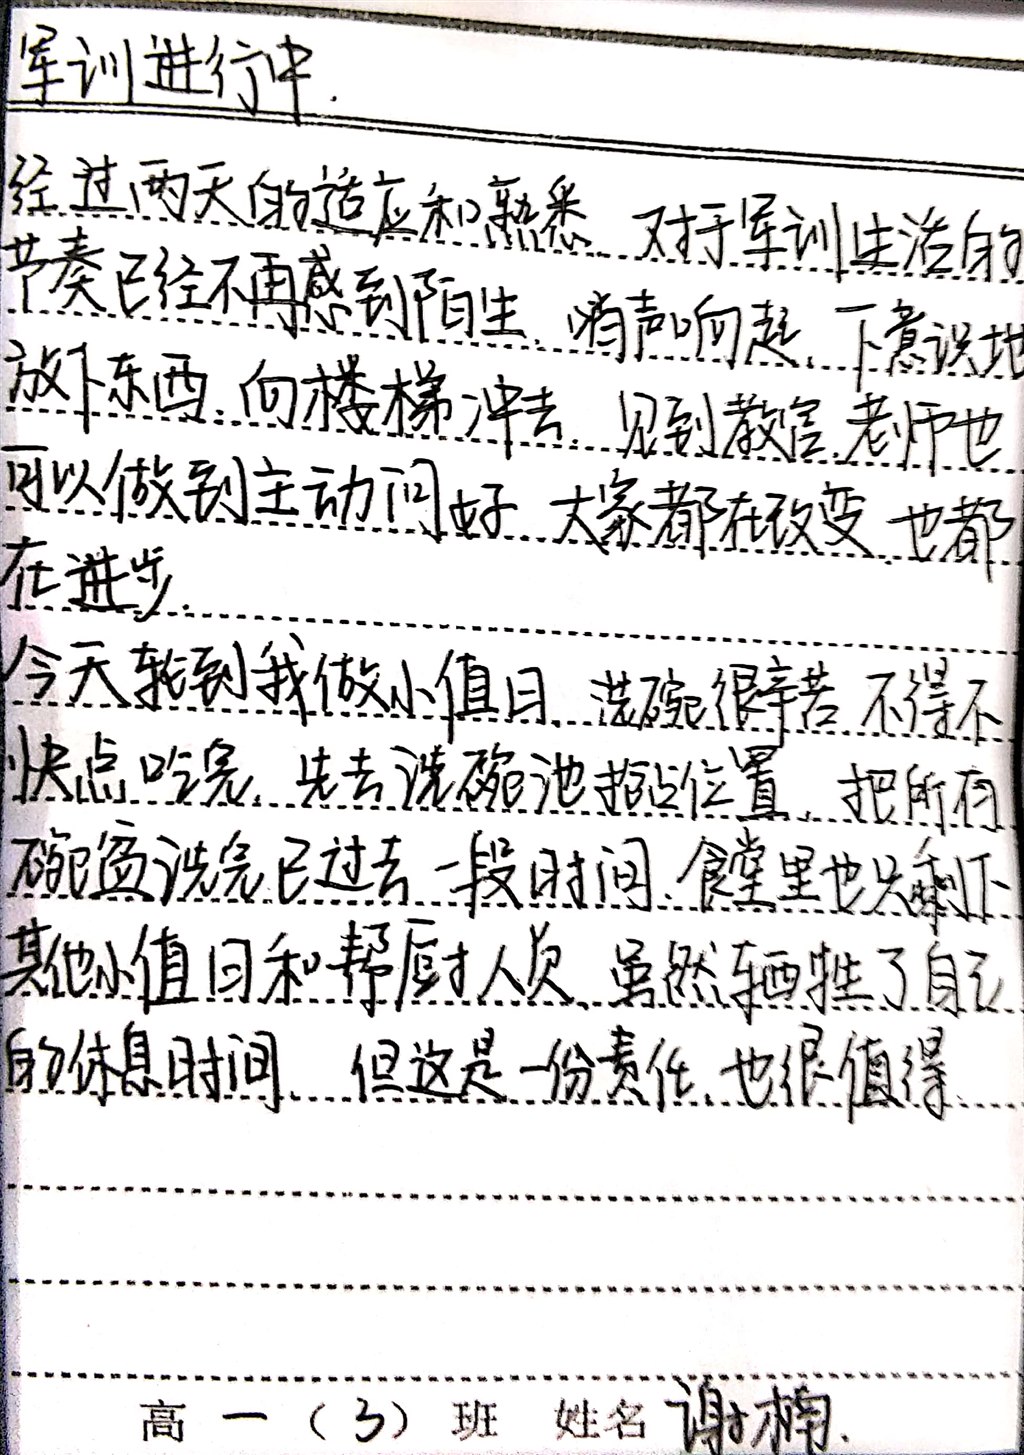 军训进行中.
经过两天的适应和熟悉, 对于军训生活的
节奏已经不再感到陌生, 哨声响起, 下意识地
放下东西, 向楼梯冲去, 见到教官, 老师也
可以做到主动问好, 大家都在改变, 也都
在进步.
今天轮到我做小值日, 洗碗很辛苦, 不得不
快点吃完, 先去洗碗池抢占位置, 把所有
碗盆洗完已过去一段时间, 食堂里也只剩下
其他小值日和帮厨人员, 虽然牺牲了自己
的休息时间, 但这是一份责任, 也很值得.
高一(3)班 姓名 谢楠.